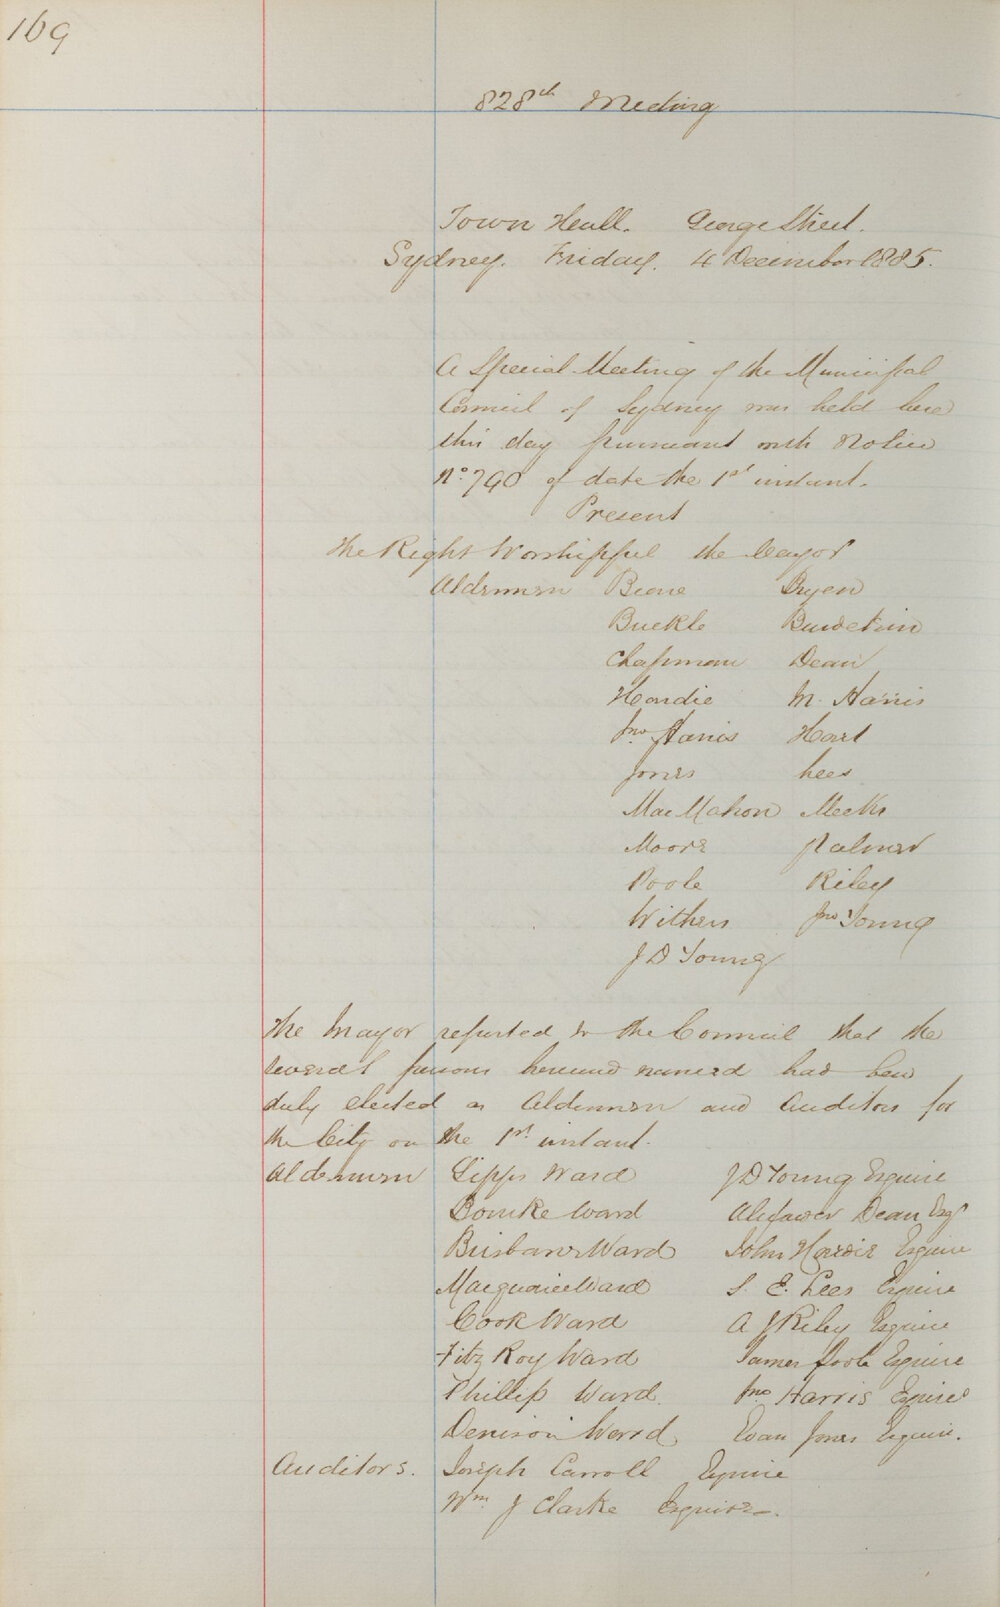 169
828th Meeting
Town Hall. George Street.
Sydney. Friday. 4 December 1885.
A Special Meeting of the Municipal
Council of Sydney was held here
this day pursuant with Notice
No. 790 of date the 1st instant.
Present
The Right Worshipful the Mayor
Aldermen Beare Bryen
Buckle Burdekin
Chapman Dean
Hardie M. Harris
Jno Harris Hart
Jones Lees
MacMahon Meeks
Moore Palmer
Poole Riley
Withers Jno Young
J D Young
The Mayor reported to the Council that the
several persons hereund named had been
duly elected as Aldermen and Auditors for
the City on the 1st instant.
Aldermen Gipps Ward J D Young Esquire
Bourke Ward Alexander Dean Esqr
Brisbane Ward John Hardie Esquire
Macquarie Ward S. E. Lees Esquire
Cook Ward A J Riley Esquire
Fitz Roy Ward James Poole Esquire
Phillip Ward. Jno Harris Esquire
Denison Ward Evan Jones Esquire.
Auditors. Joseph Carroll Esquire
Wm J Clarke Esquire.